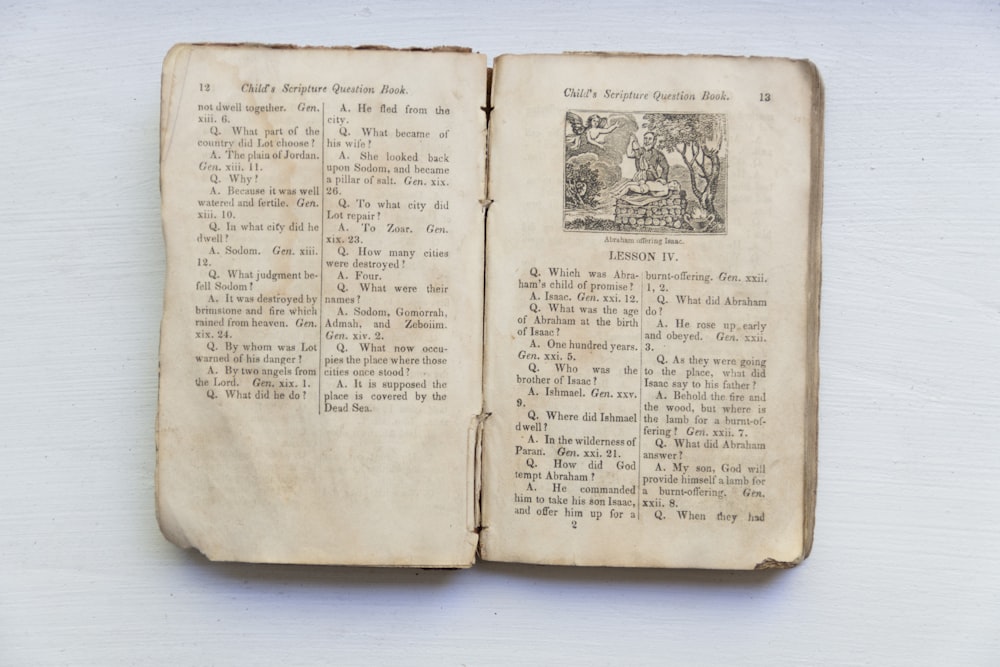 12 Child's Scripture Question Book.
not dwell together. Gen.
xiii. 6.
Q. What part of the
country did Lot choose?
A. The plain of Jordan.
Gen. xiii. 11.
Q. Why?
A. Because it was well
watered and fertile. Gen.
xiii. 10.
Q. In what city did he
dwell?
A. Sodom. Gen. xiii.
12.
Q. What judgment be-
fell Sodom?
A. It was destroyed by
brimstone and fire which
rained from heaven. Gen.
xix. 24.
Q. By whom was Lot
warned of his danger?
A. By two angels from
the Lord. Gen. xix. 1.
Q. What did he do?
A. He fled from the
city.
Q. What became of
his wife?
A. She looked back
upon Sodom, and became
a pillar of salt. Gen. xix.
26.
Q. To what city did
Lot repair?
A. To Zoar. Gen.
xix. 23.
Q. How many cities
were destroyed?
A. Four.
Q. What were their
names?
A. Sodom, Gomorrah,
Admah, and Zeboiim.
Gen. xiv. 2.
Q. What now occu-
pies the place where those
cities once stood?
A. It is supposed the
place is covered by the
Dead Sea.
Child's Scripture Question Book. 13
Abraham offering Isaac.
LESSON IV.
Q. Which was Abra-
ham's child of promise?
A. Isaac. Gen. xxi. 12.
Q. What was the age
of Abraham at the birth
of Isaac?
A. One hundred years.
Gen. xxi. 5.
Q. Who was the
brother of Isaac?
A. Ishmael. Gen. xxv.
9.
Q. Where did Ishmael
dwell?
A. In the wilderness of
Paran. Gen. xxi. 21.
Q. How did God
tempt Abraham?
A. He commanded
him to take his son Isaac,
and offer him up for a
2
burnt-offering. Gen. xxii.
1, 2.
Q. What did Abraham
do?
A. He rose up early
and obeyed. Gen. xxii.
3.
Q. As they were going
to the place, what did
Isaac say to his father?
A. Behold the fire and
the wood, but where is
the lamb for a burnt-of-
fering? Gen. xxii. 7.
Q. What did Abraham
answer?
A. My son, God will
provide himself a lamb for
a burnt-offering. Gen.
xxii. 8.
Q. When they had